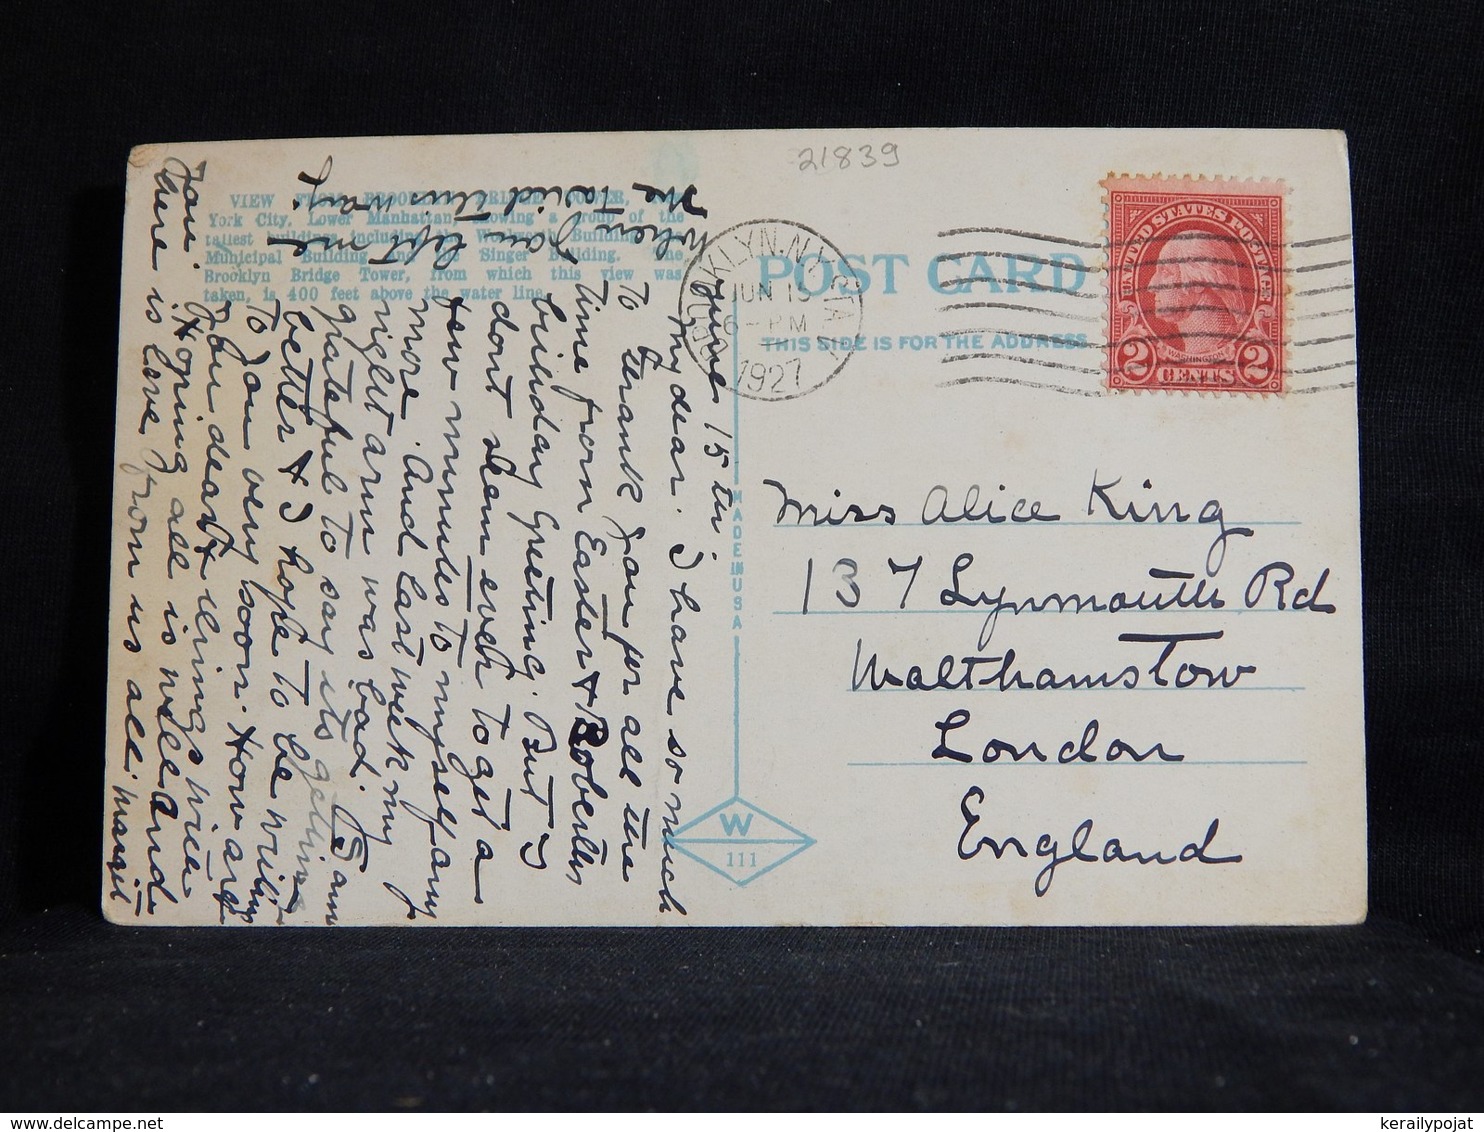 21839
VIEW FROM BROOKLYN BRIDGE TOWER,
York City. Lower Manhattan, showing a group of the
tallest buildings including the Woolworth Building,
Municipal Building and the Singer Building. The
Brooklyn Bridge Tower, from which this view was
taken, is 400 feet above the water line.
POST CARD
THIS SIDE IS FOR THE ADDRESS
BROOKLYN. N.Y.
JUN 15
6-PM
1927
UNITED STATES POSTAGE
WASHINGTON
2 CENTS 2
June 15th.
My dear. I have so much
to thank you for all the
time from Easter & Roberts
birthday Greeting. But I
dont seem ever to get a
few minutes to myself any
more. And last week my
right arm was bad. I am
grateful to say its getting
better & I hope to be writing
to you very soon. How are
you dear &
Hoping all is well and
here is love from us all. Margit
When you left me
MADE IN USA
W
111
Miss Alice King
137 Lynmouth Rd
Walthamstow
London
England
kerailypojat